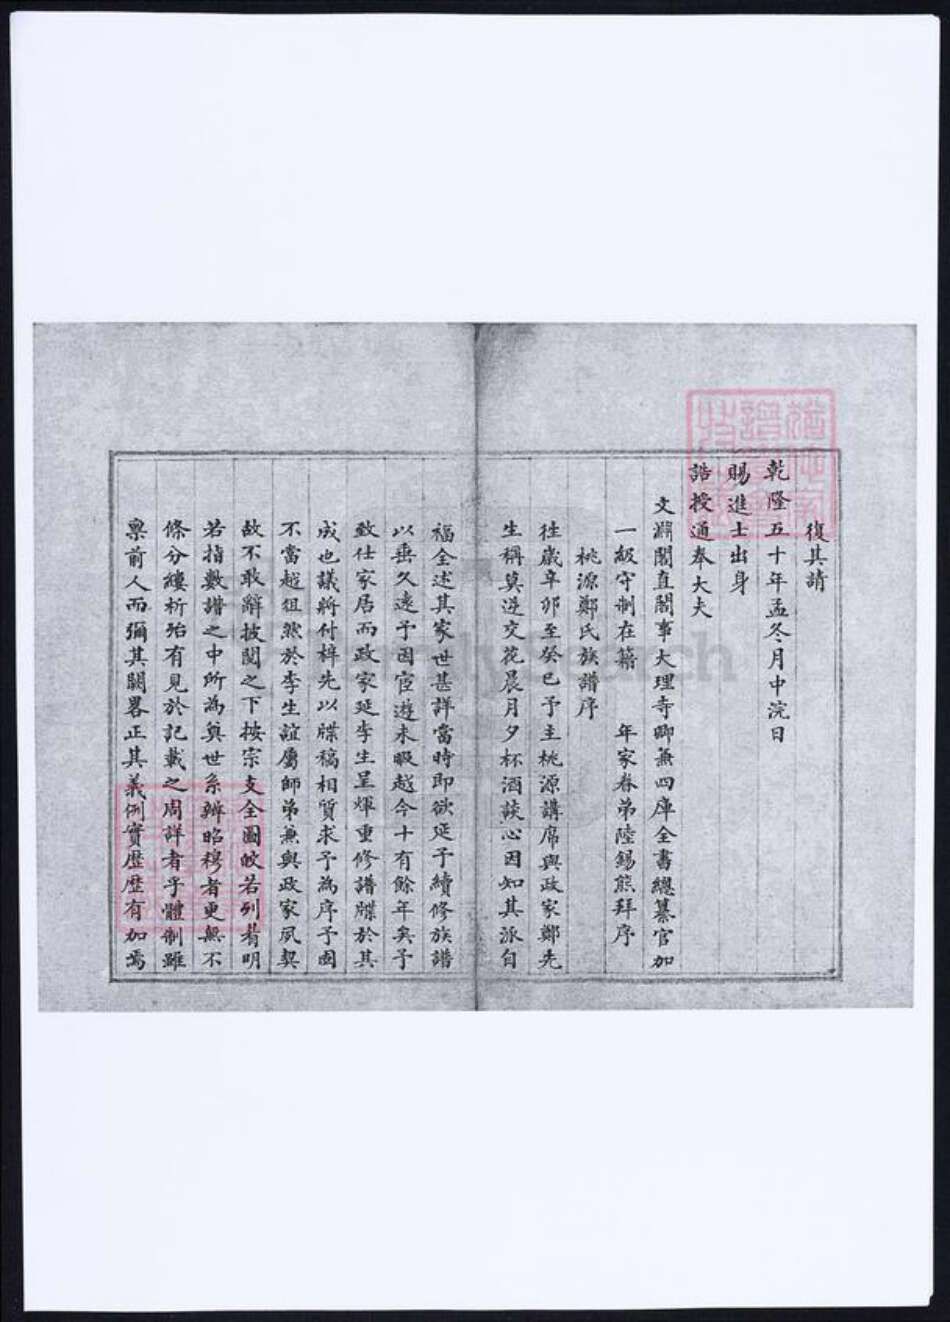 復其請
乾隆五十年孟冬月中浣日
賜進士出身
誥授通奉大夫
文淵閣直閣事大理寺卿兼四庫全書總纂官加
一級守制在籍　年家眷弟陸錫熊拜序
桃源鄭氏族譜序
往歲辛卯至癸巳予主桃源講席與政家鄭先
生稱莫逆交花晨月夕杯酒談心因知其派自
福全述其家世甚詳當時即欲延予續修族譜
以垂久遠予因宦遊未暇越今十有餘年矣予
致仕家居而政家延李生呈煇重修譜牒於其
成也議將付梓先以牒稿相質求予為序予固
不當越俎然於李生誼屬師弟兼與政家夙契
故不敢辭披閱之下按宗支全圖皎若列眉明
若指數譜之中所為奠世系辨昭穆者更無不
條分縷析殆有見於記載之周詳者乎體制雖
稟前人而彌其闕畧正其義例實歷歷有加焉
FamilySearch